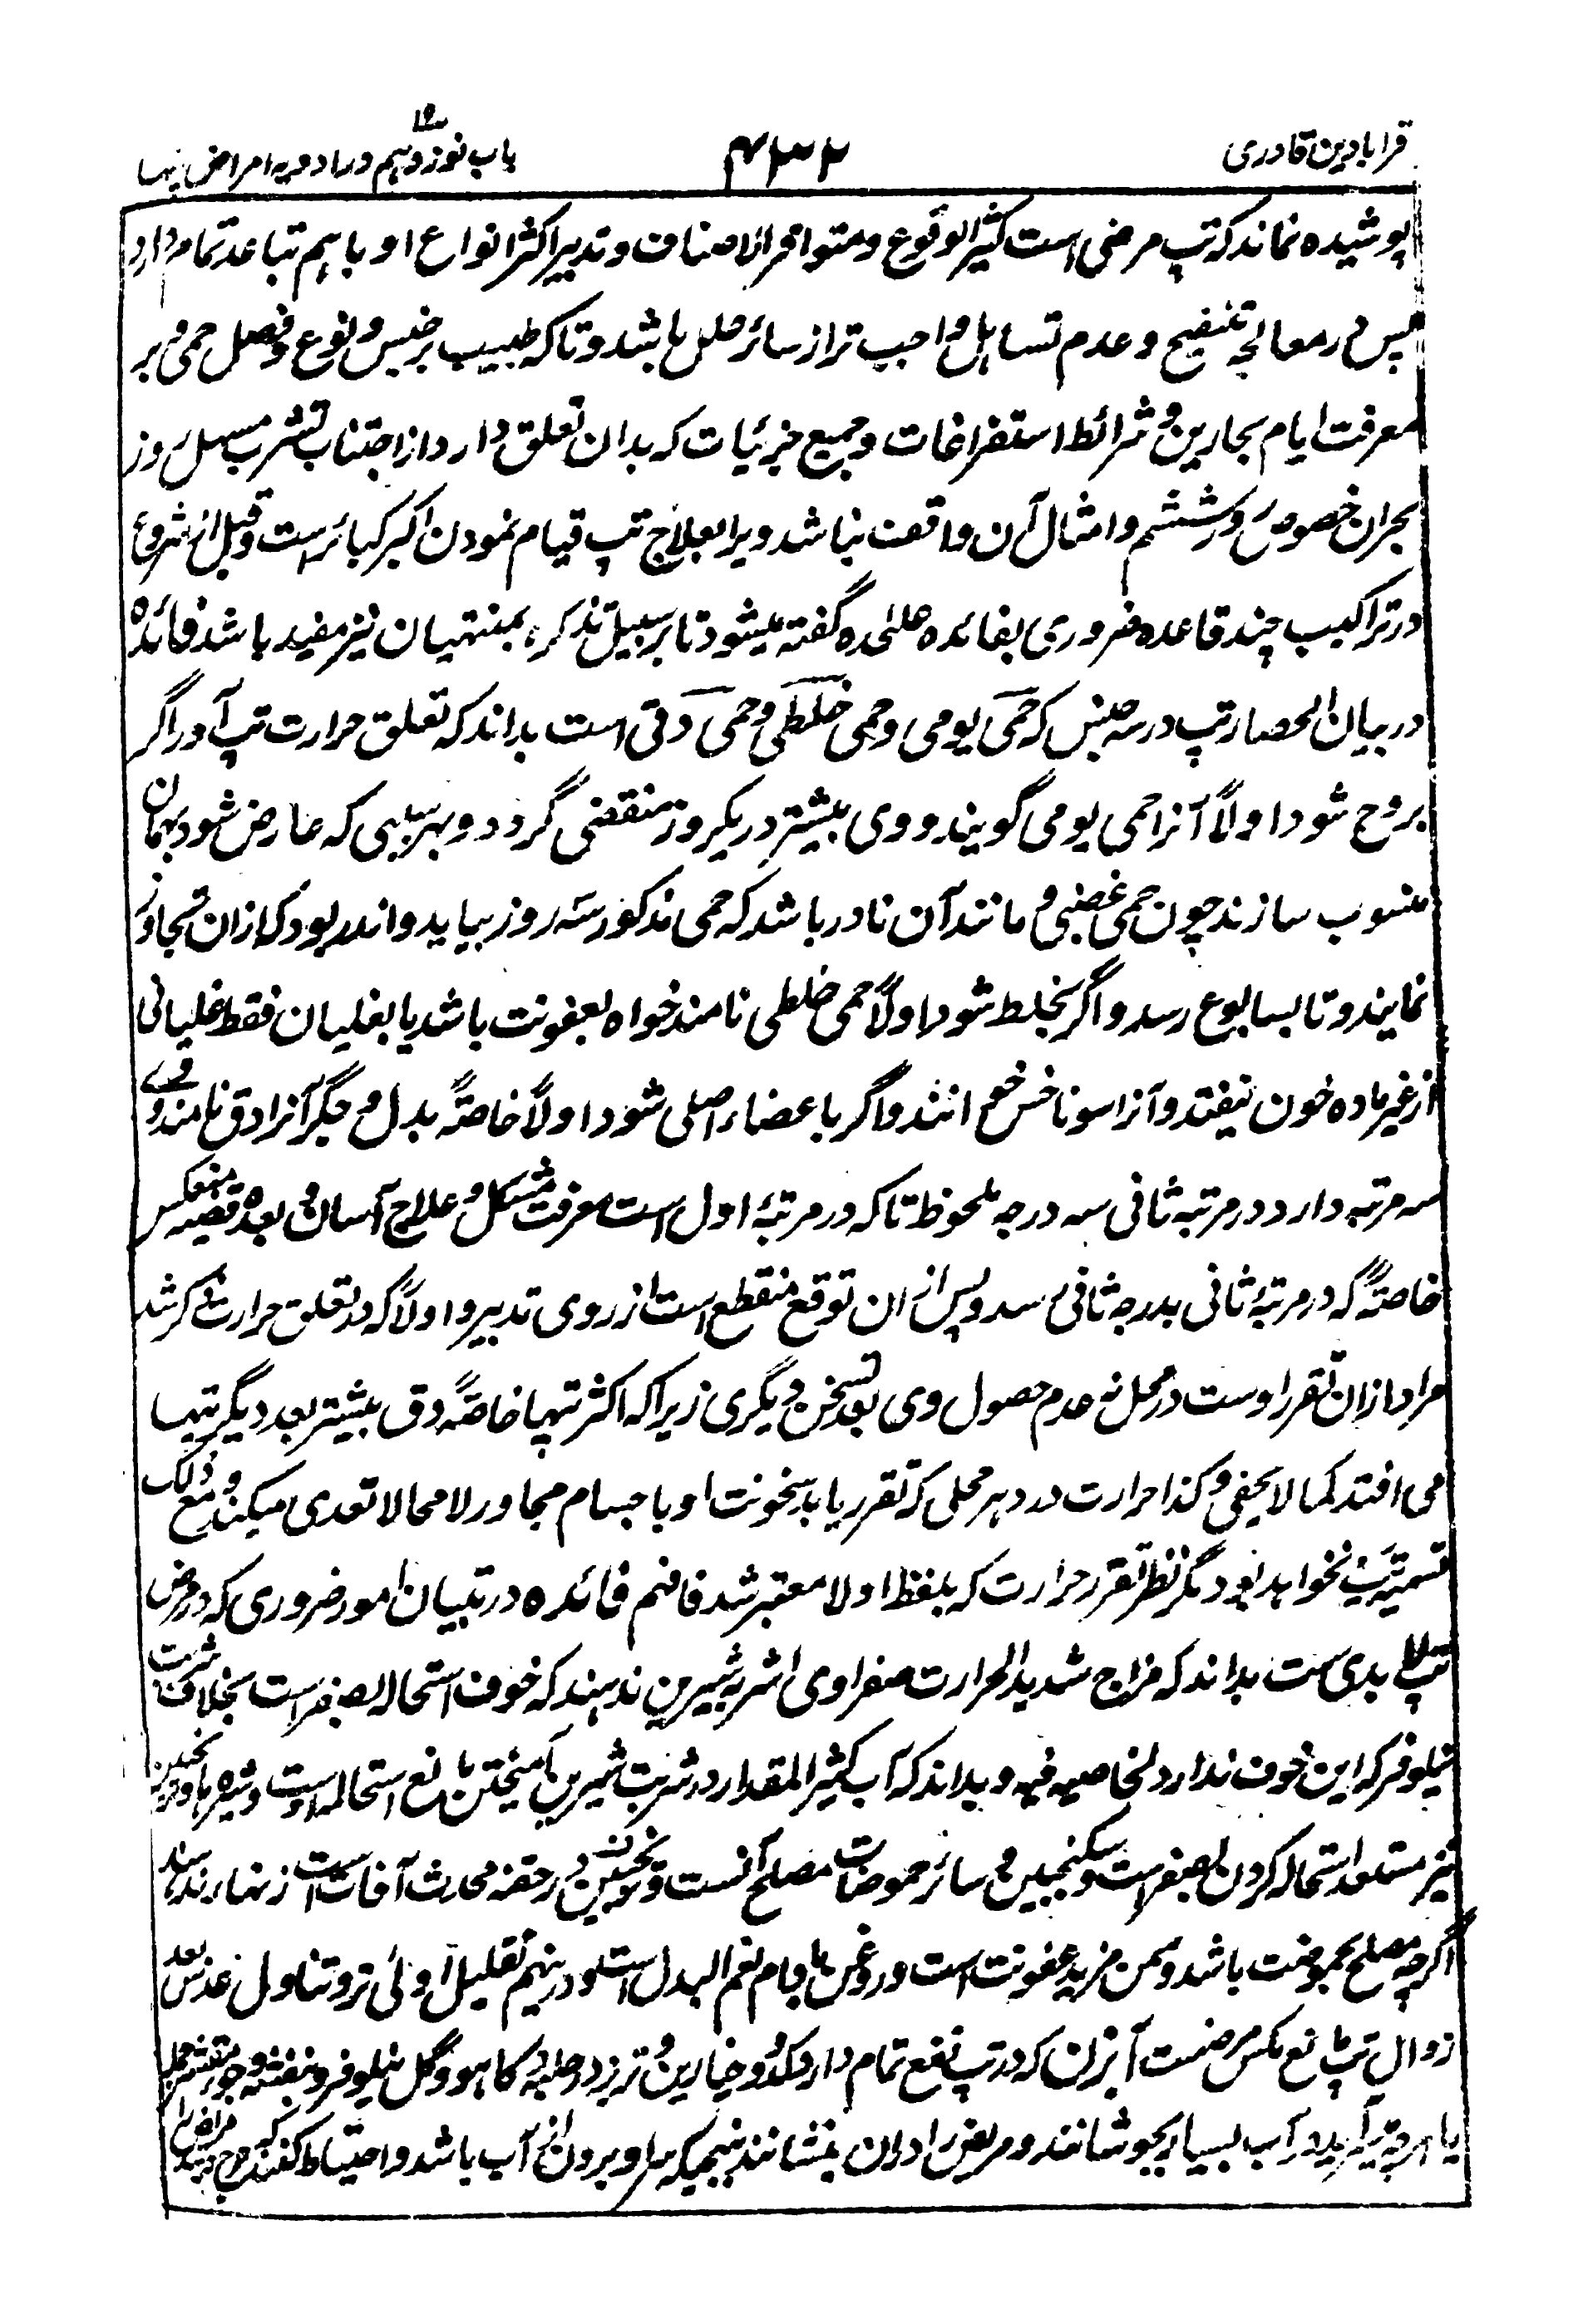 قرابادین قادری
۴۳۲
باب نوزدهم در ادویه امراض تپها
پوشیده نماند که تپ مرضی است کثیر الوقوع و متوافر الاصناف و تدبیر اکثر انواع او باهم تباعد تمام دارد
پس در معالجه تنقیح و عدم تساهل واجب تر از سائر علل باشد و تاکه طبیب بر جنس و نوع و فصل حمی و بر
معرفت ایام بحارین و شرائط استفراغات و جمیع جزئیات که بدان تعلق دارد از اجتناب تشرب مسهل روز
بحران خصوص روز ششم و امثال آن واقف نباشد ویرا بعلاج تپ قیام نمودن اکبر کبائر است و قبل از شروع
در تراکیب چند قاعده ضروری بفائده علیٰده گفته میشود تا بر سبیل تذکره بمنتهیان نیز مفید باشد فائده
در بیان انحصار تپ در سه جنس که حمی یومی و حمی خلطی و حمی دقی است بداند که تعلق حرارت تپ آور اگر
بروح شود اولاً آنرا حمی یومی گویند و وی بیشتر در یکروز منقضی گردد و بهر سببی که عارض شود بهمان
منسوب سازند چون حمی غضبی و مانند آن نادر باشد که حمی مذکور سه روز بیاید و اندر بود که ازان تجاوز
نمایند و تا بسابوع رسد و اگر بخلط شود اولاً حمی خلطی نامند خواه بعفونت باشد یا بغلیان فقط غلیانی
از غیر ماده خون نیفتد و آنرا سوناخس خوانند و اگر باعضاء اصلی شود اولاً خاصةً بدل و جگر آنرا دق نامند و وی
سه مرتبه دارد در مرتبه ثانی سه درجه ملحوظ تاکه در مرتبهٔ اول است معرفت مشکل و علاج آسان و بعده قضیه منعکس
خاصةً که در مرتبهٔ ثانی بدرجه ثانی رسد و پس از ان توقع منقطع است از روی تدبیر و اولاً که در تعلق حرارت ذکر شد
مراد ازان تقرر اوست در محل نه عدم حصول وی بعد تسخن دیگری زیرا که اکثر تپها خاصةً دق بیشتر بعد دیگر تپها
می افتد کما لا یخفی و کذا حرارت در هر محلی که تقرر یابد سخونت او باجسام مجاور لا محالا تعدی میکند و مع ذلک
تسمیهٔ تپ نخواهد بود مگر نظر بتقرر حرارت که بلفظ اولا معتبر شد فافهم فائده در تبیان امور ضروری که در مرض
تپ لابدی ست بداند که مزاج شدید الحرارت صفراوی اشربه شیرین ندهند که خوف استحاله بصفرا ست بخلاف شربت
نیلوفر که این خوف ندارد لخاصیه فیه و بداند که آب کثیر المقدار در شربت شیرین آمیختن مانع استحاله اوست و شیره
نیز مستعد استحاله کردن بصفرا ست و سکنجبین و سائر حموضات مصلح آنست و در حقنه محدث آفات است زنهار ندهند
اگرچه مصلح بحموضت باشد و سمن مزید عفونت است و روغن بادام نعم البدل است و درینهم تقلیل اولی تر و تناول عدس بعد
زوال تپ مانع نکس مرض ست آبزن که در تپ نفع تمام دارد کدو و خیارین و تربز و حلبه و کاهو و گل نیلوفر و بنفشه و جو مقشر جمله
یا هرچه میسر آید در آب بسیار بجوشانند و مریض را دران بنشانند بنهجیکه سر او بیرون از آب باشد و احتیاط کنند که